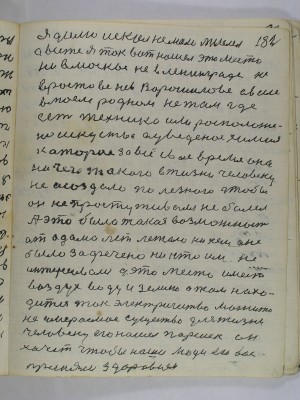 182
Я долго искал не мало мыслил
а вите я так вот нашел это место
ни в москве не в ленинграде не
в ростове не в Ворошилове а в селе
в моем родном не там где
сеть техника или расположе-
но искуства а уведеное химия
каторое за все свое время она
ни чего такого в жизни человеку
не создало полезного чтобы
он не простуживался не болел
А это была такая возможност
от адама лет лежало ни кем не
было замечено ни кто им не
интересовался а это место имеет
воздух воду и землю в ком нахо-
дится ток электричество магнито
не умераемое существо для жизни
человеку его нашел паршек он
хочет чтобы наши люди его вос
приняли здоровья